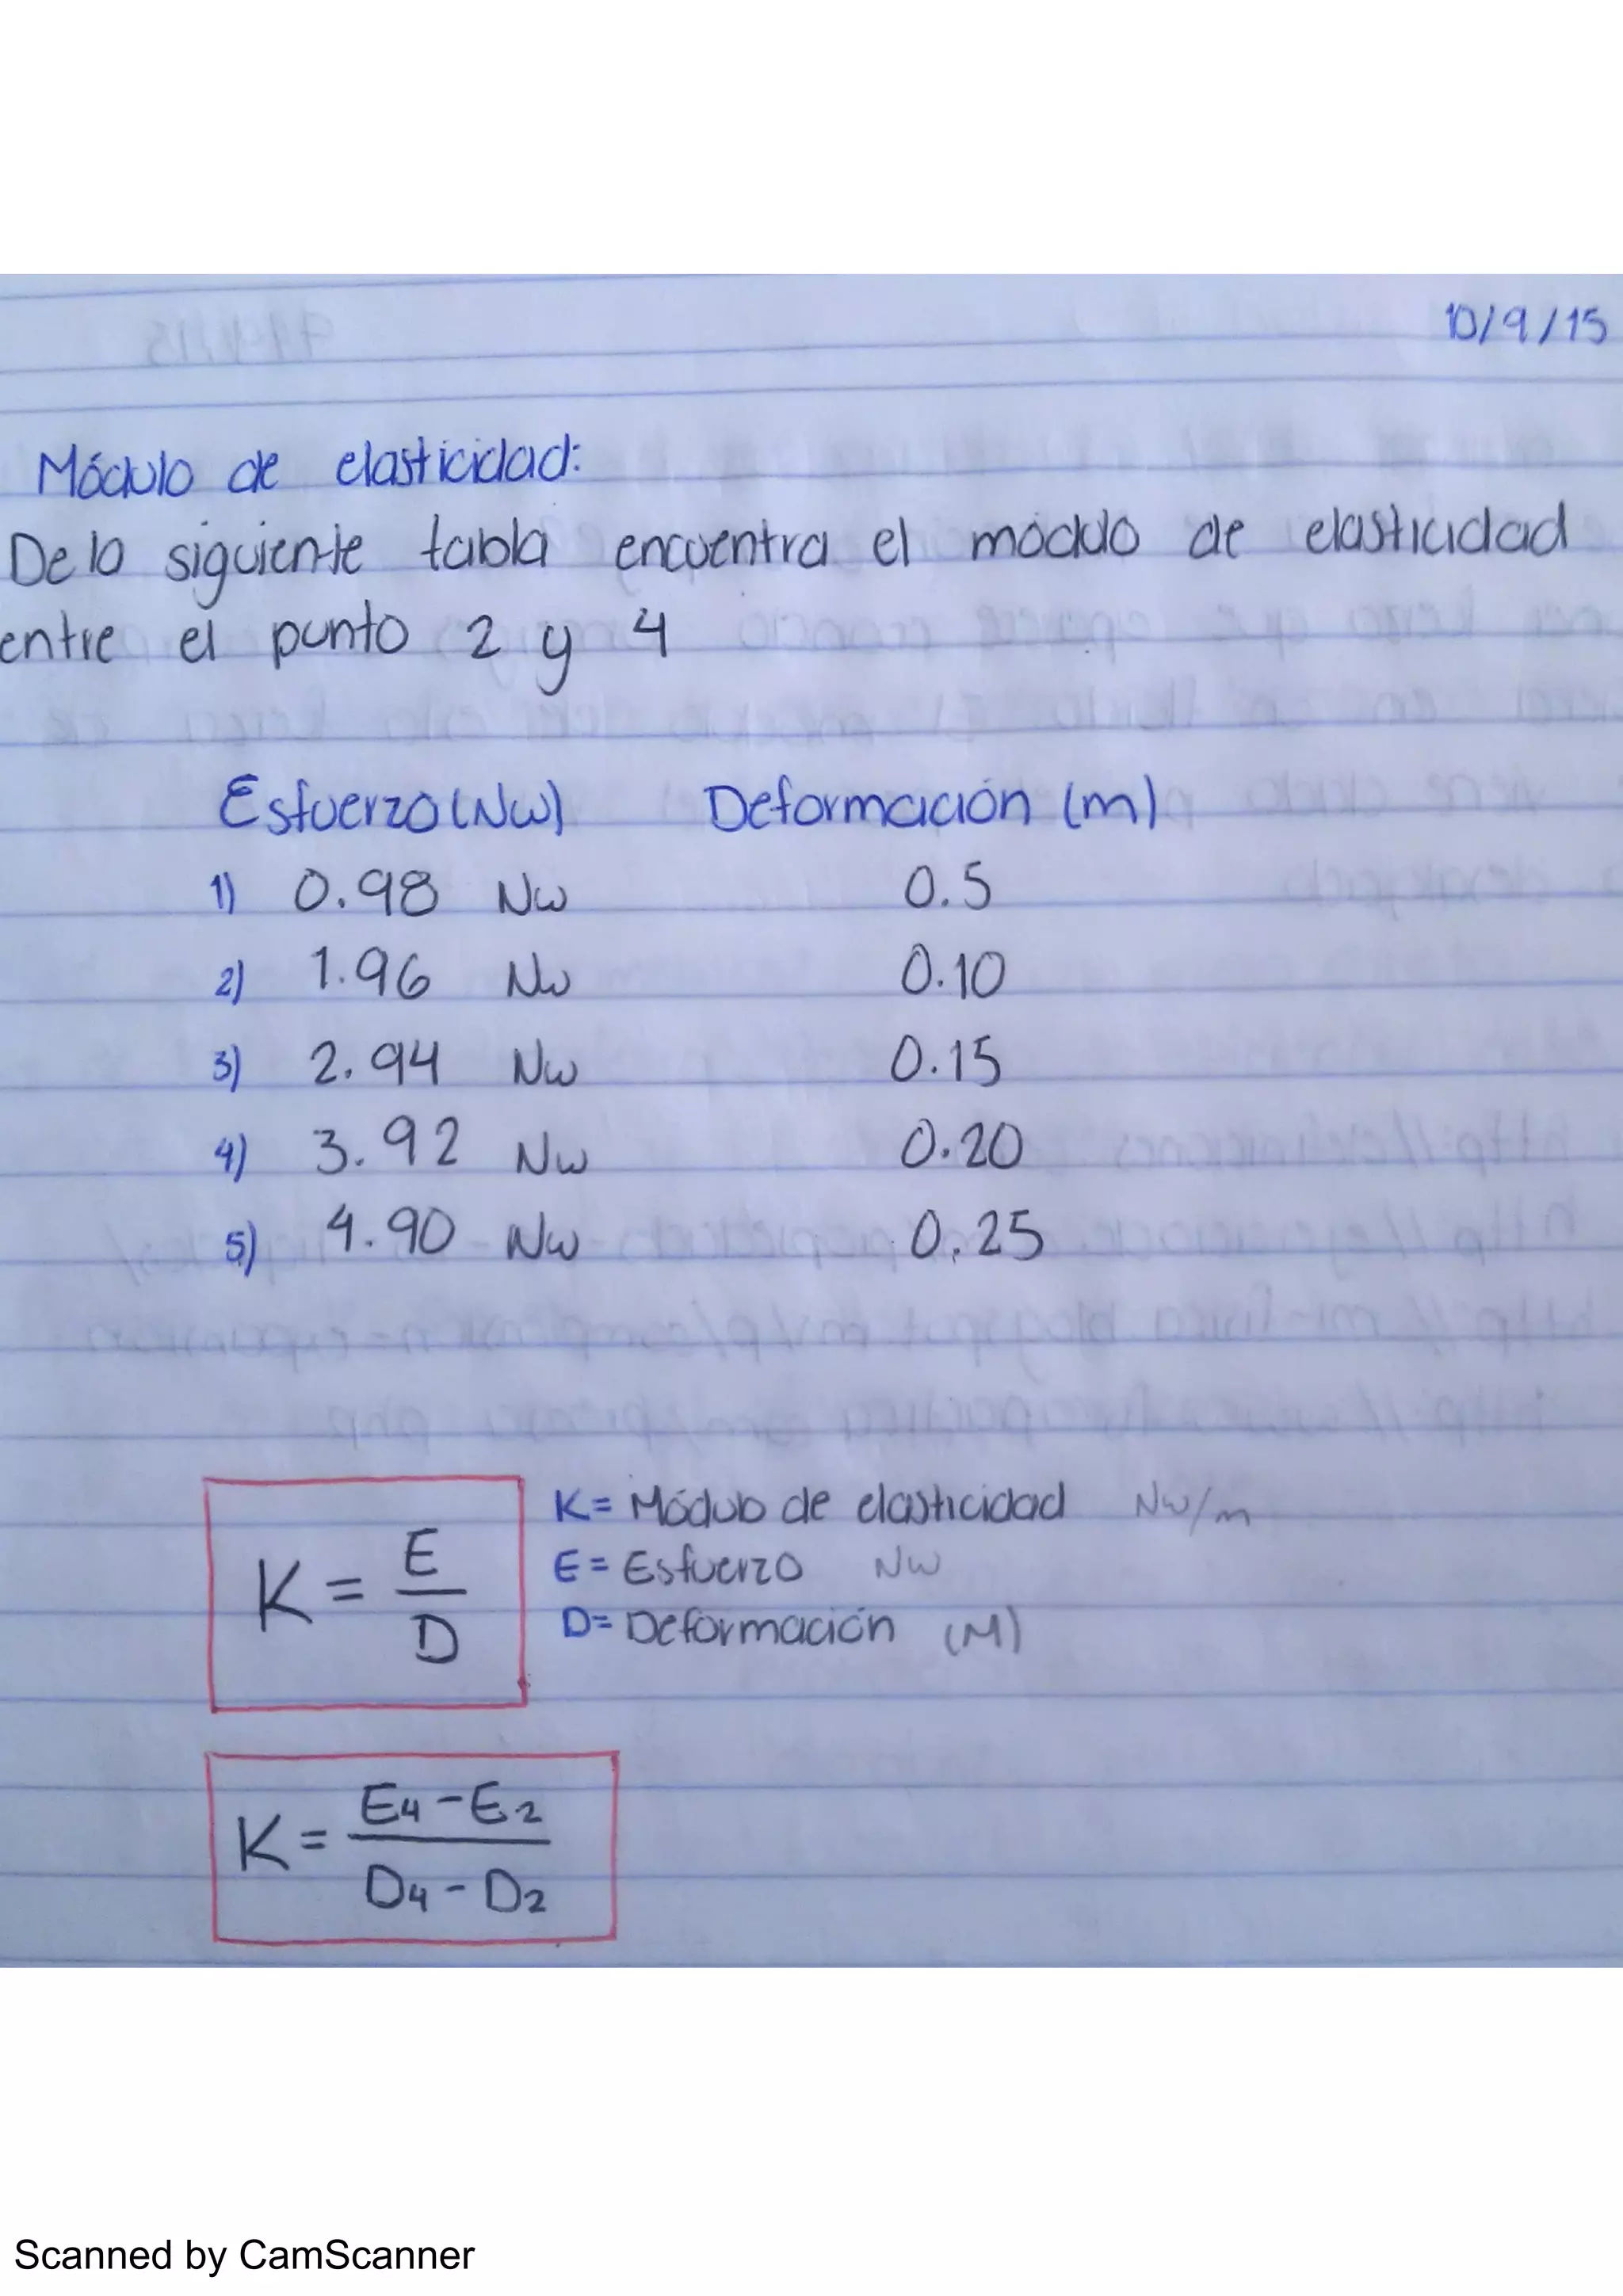 10/9/15
Módulo de elasticidad:
De la siguiente tabla encuentra el módulo de elasticidad
entre el punto 2 y 4
Esfuerzo (Nw) Deformación (m)
1) 0.98 Nw 0.5
2) 1.96 Nw 0.10
3) 2.94 Nw 0.15
4) 3.92 Nw 0.20
5) 4.90 Nw 0.25
K = E/D
K = Módulo de elasticidad Nw/m
E = Esfuerzo Nw
D = Deformación (M)
K = E4 - E2 / D4 - D2
Scanned by CamScanner